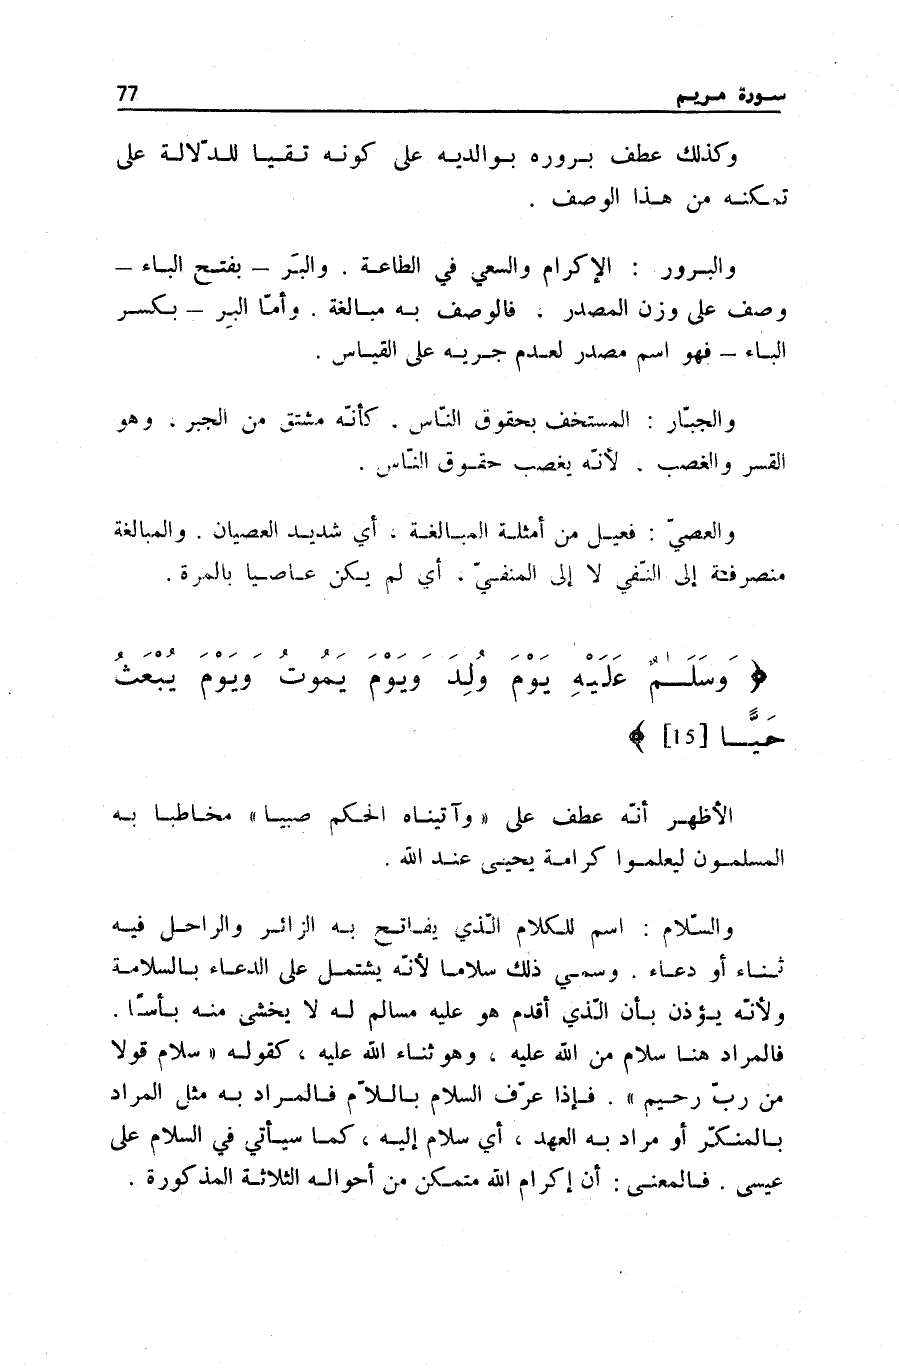 سورة مريم 77
وكذلك عطف بروره بوالديه على كونه تقيا للدّلالة على
تمكنه من هذا الوصف .
والبرور : الإكرام والسعي في الطاعة . والبَر – بفتح الباء –
وصف على وزن المصدر ، فالوصف به مبالغة . وأمّا البِر – بكسر
الباء – فهو اسم مصدر لعدم جريه على القياس .
والجبّار : المستخف بحقوق النّاس ، كأنّه مشتق من الجبر ، وهو
القسر والغصب . لأنّه يغصب حقوق النّاس .
والعصيّ : فعيل من أمثلة المبالغة ، أي شديد العصيان . والمبالغة
منصرفة إلى النّفي لا إلى المنفيّ ، أي لم يكن عاصيا بالمرة .
﴿ وَسَلَٰمٌ عَلَيْهِ يَوْمَ وُلِدَ وَيَوْمَ يَمُوتُ وَيَوْمَ يُبْعَثُ
حَيًّا [15] ﴾
الأظهر أنّه عطف على « وآتيناه الحكم صبيا » مخاطبا به
المسلمون ليعلموا كرامة يحيى عند الله .
والسّلام : اسم للكلام الّذي يفاتح به الزائر والراحل فيه
ثناء أو دعاء . وسمي ذلك سلاما لأنّه يشتمل على الدعاء بالسلامة
ولأنّه يؤذن بأن الّذي أقدم هو عليه مسالم له لا يخشى منه بأسًا .
فالمراد هنا سلام من الله عليه ، وهو ثناء الله عليه ، كقوله « سلام قولا
من ربّ رحيم » . فإذا عرّف السلام باللاّم فالمراد به مثل المراد
بالمنكّر أو مراد به العهد ، أي سلام إليه ، كما سيأتي في السلام على
عيسى . فالمعنى : أن إكرام الله متمكن من أحواله الثلاثة المذكورة .